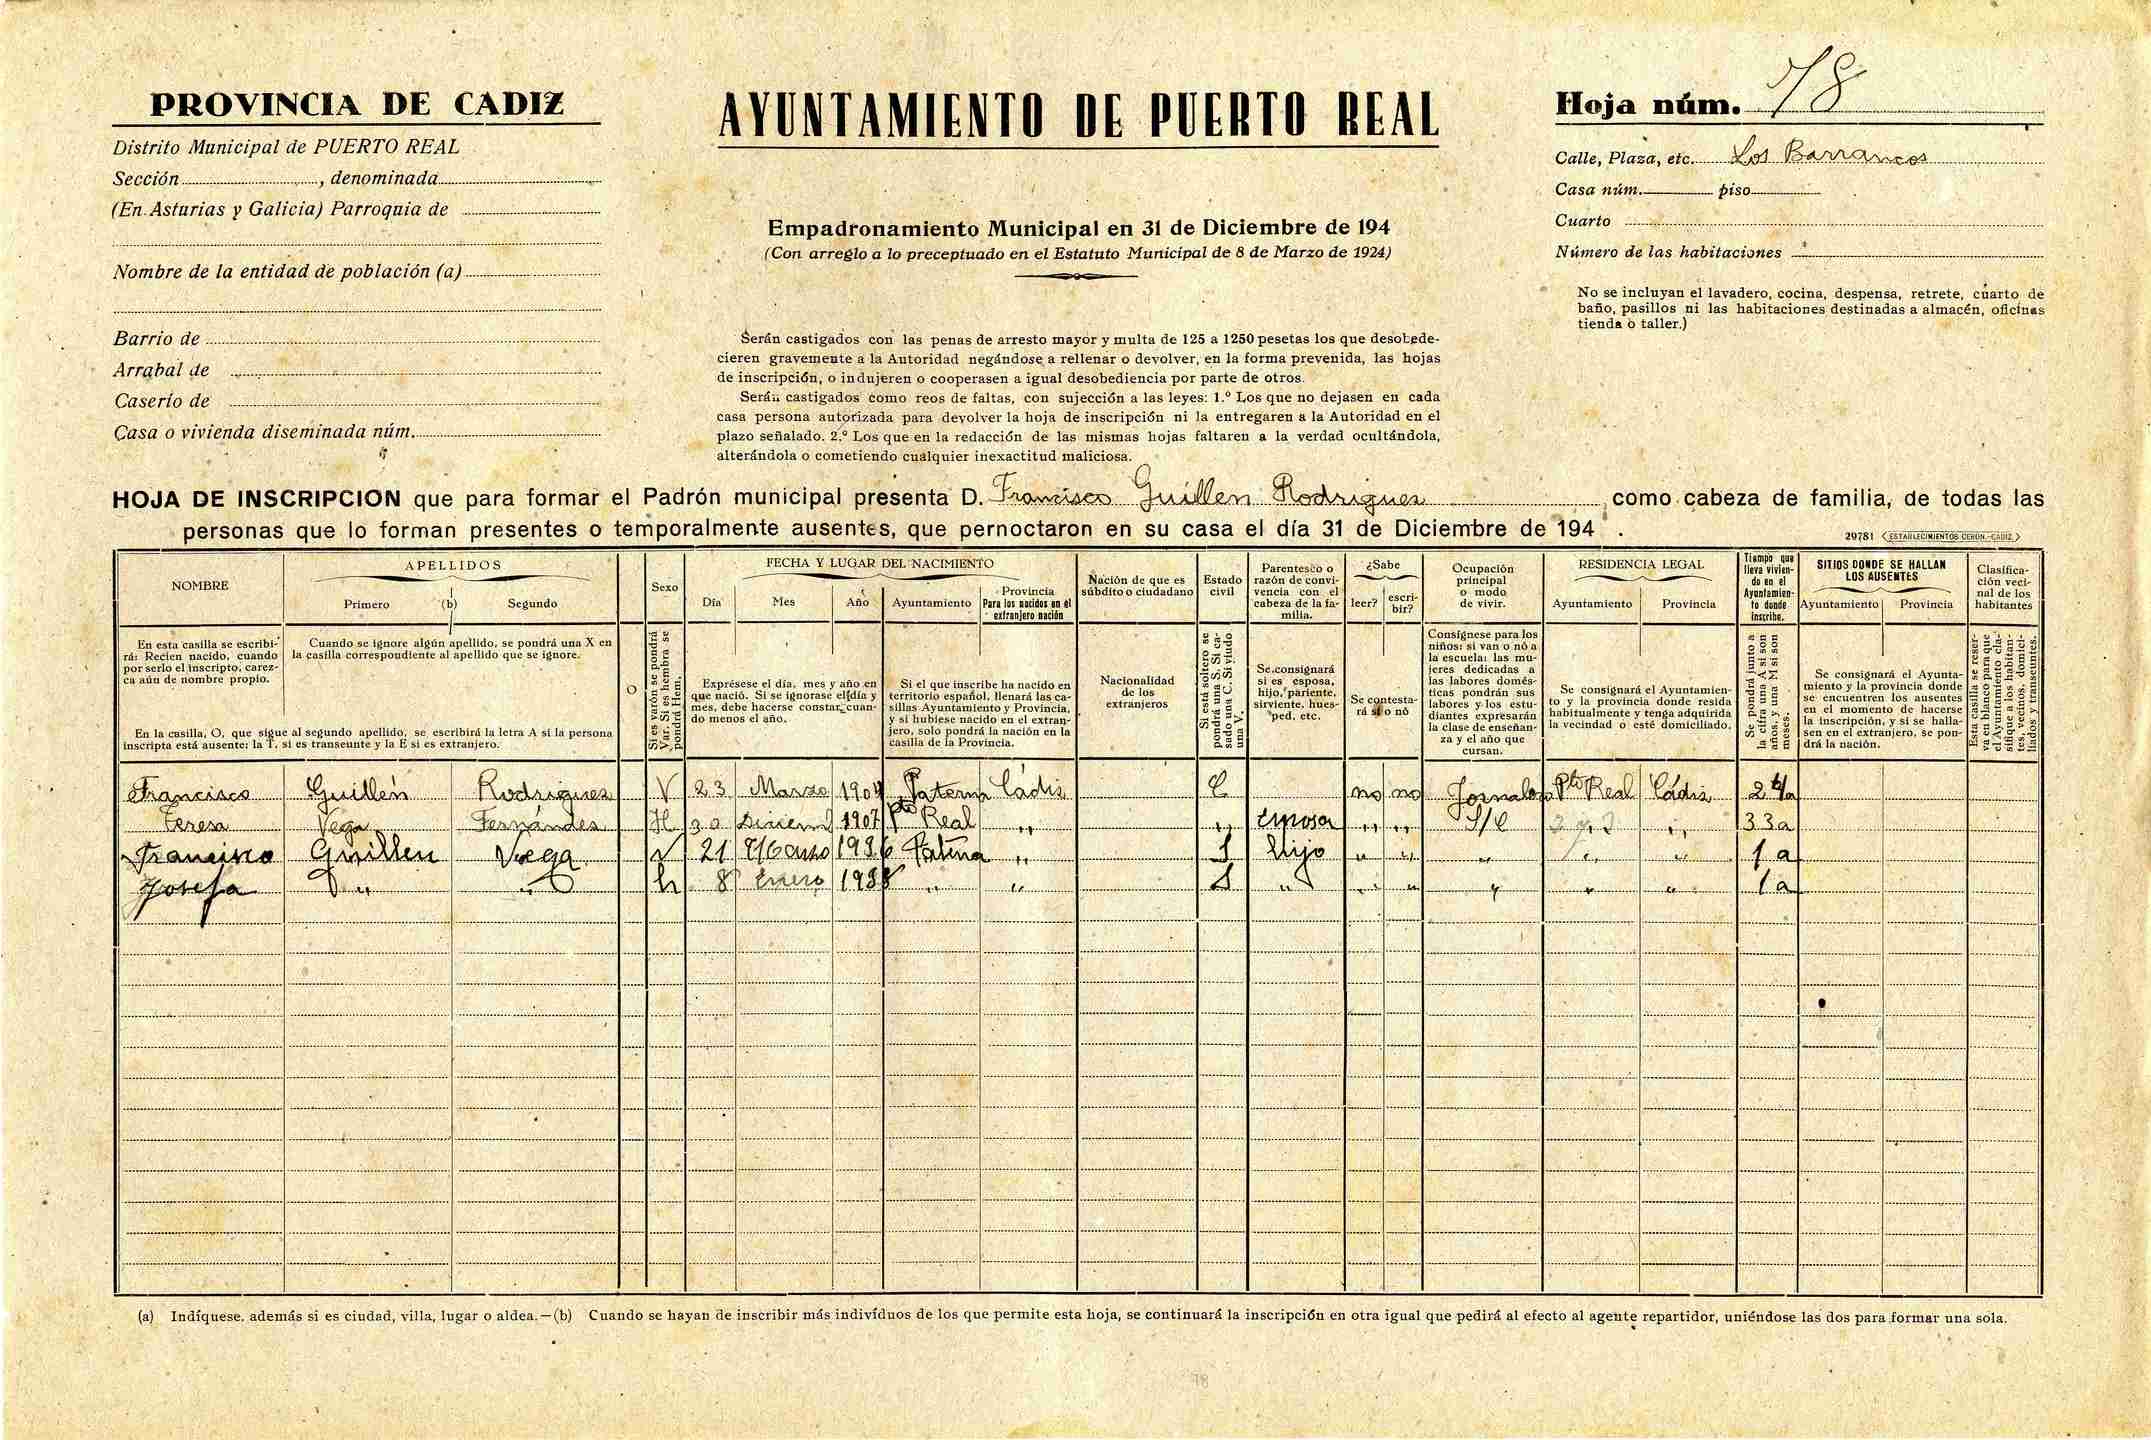 PROVINCIA DE CADIZ
Distrito Municipal de PUERTO REAL
Sección , denominada
(En Asturias y Galicia) Parroquia de
Nombre de la entidad de población (a)
Barrio de
Arrabal de
Caserío de
Casa o vivienda diseminada núm.
AYUNTAMIENTO DE PUERTO REAL
Empadronamiento Municipal en 31 de Diciembre de 194
(Con arreglo a lo preceptuado en el Estatuto Municipal de 8 de Marzo de 1924)
Serán castigados con las penas de arresto mayor y multa de 125 a 1250 pesetas los que desobede-
cieren gravemente a la Autoridad negándose a rellenar o devolver, en la forma prevenida, las hojas
de inscripción, o indujeren o cooperasen a igual desobediencia por parte de otros.
Serán castigados como reos de faltas, con sujección a las leyes: 1.º Los que no dejasen en cada
casa persona autorizada para devolver la hoja de inscripción ni la entregaren a la Autoridad en el
plazo señalado. 2.º Los que en la redacción de las mismas hojas faltaren a la verdad ocultándola,
alterándola o cometiendo cualquier inexactitud maliciosa.
Hoja núm. 78
Calle, Plaza, etc. Los Barrancos
Casa núm. piso
Cuarto
Número de las habitaciones
No se incluyan el lavadero, cocina, despensa, retrete, cuarto de
baño, pasillos ni las habitaciones destinadas a almacén, oficinas
tienda o taller.)
HOJA DE INSCRIPCION que para formar el Padrón municipal presenta D. Francisco Guillen Rodriguez como cabeza de familia, de todas las
personas que lo forman presentes o temporalmente ausentes, que pernoctaron en su casa el día 31 de Diciembre de 194 .
29781 (ESTABLECIMIENTOS CERON.-CADIZ.)
NOMBRE
APELLIDOS
Primero (b) Segundo
O
Sexo
FECHA Y LUGAR DEL NACIMIENTO
Día Mes Año Ayuntamiento
Provincia
Para los nacidos en el
extranjero nación
Nación de que es
súbdito o ciudadano
Estado
civil
Parentesco o
razón de convi-
vencia con el
cabeza de la fa-
milia.
¿Sabe
leer?
escri-
bir?
Ocupación
principal
o modo
de vivir.
RESIDENCIA LEGAL
Ayuntamiento Provincia
Tiempo que
lleva vivien-
do en el
Ayuntamien-
to donde
inscribe.
SITIOS DONDE SE HALLAN
LOS AUSENTES
Ayuntamiento Provincia
Clasifica-
ción veci-
nal de los
habitantes
En esta casilla se escribi-
rá: Recien nacido, cuando
por serlo el inscripto, carez-
ca aún de nombre propio.
Cuando se ignore algún apellido, se pondrá una X en
la casilla correspondiente al apellido que se ignore.
En la casilla, O, que sigue al segundo apellido, se escribirá la letra A si la persona
inscripta está ausente: la T, si es transeunte y la E si es extranjero.
Si es varón se pondrá
Var. Si es hembra se
pondrá Hem.
Exprésese el día, mes y año en
que nació. Si se ignorase el día y
mes, debe hacerse constar cuan-
do menos el año.
Si el que inscribe ha nacido en
territorio español, llenará las ca-
sillas Ayuntamiento y Provincia,
y si hubiese nacido en el extran-
jero, solo pondrá la nación en la
casilla de la Provincia.
Nacionalidad
de los
extranjeros
Si está soltero se
pondrá una S. Si ca-
sado una C. Si viudo
una V.
Se consignará
si es esposa,
hijo, pariente,
sirviente, hues-
ped, etc.
Se contesta-
rá sí o nó
Consígnese para los
niños: si van o nó a
la escuela: las mu-
jeres dedicadas a
las labores domés-
ticas pondrán sus
labores y los estu-
diantes expresarán
la clase de enseñan-
za y el año que
cursan.
Se consignará el Ayuntamien-
to y la provincia donde resida
habitualmente y tenga adquirida
la vecindad o esté domiciliado.
Se pondrá junto a
la cifra una A si son
años, y una M si son
meses.
Se consignará el Ayunta-
miento y la provincia donde
se encuentren los ausentes
en el momento de hacerse
la inscripción, y si se halla-
sen en el extranjero, se pon-
drá la nación.
Esta casilla se reser-
va en blanco para que
el Ayuntamiento cla-
sifique a los habitan-
tes, vecinos, domici-
liados y transeuntes.
Francisco Guillén Rodriguez V 23 Marzo 1904 Paterna Cádiz C no no Jornalero Pto Real Cádiz
Teresa Vega Fernández H 30 Diciem 1907 Pto Real " " Esposa " " S/C " 33a
Francisco Guillen Vega V 21 Marzo 1936 Paterna " S Hijo " " " " " 1a
Josefa " " h 8 Enero 1938 " " S " " " " " " 1a
(a) Indíquese. además si es ciudad, villa, lugar o aldea.—(b) Cuando se hayan de inscribir más indivíduos de los que permite esta hoja, se continuará la inscripción en otra igual que pedirá al efecto al agente repartidor, uniéndose las dos para formar una sola.
78